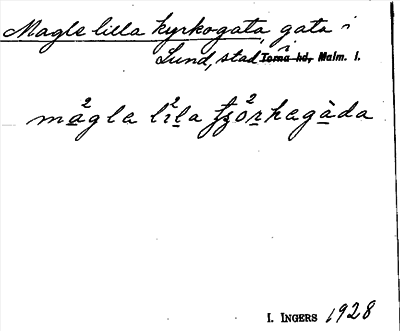 Magle lilla kyrkogata, gata i
Lund, stad Torna hd, Malm. l.
magla lila fʒorkagàda
I. INGERS 1928